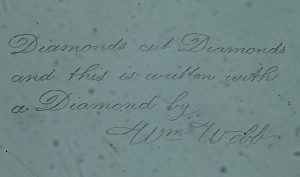 Diamonds cut Diamonds
and this is written with
a Diamond by
Wm Webb